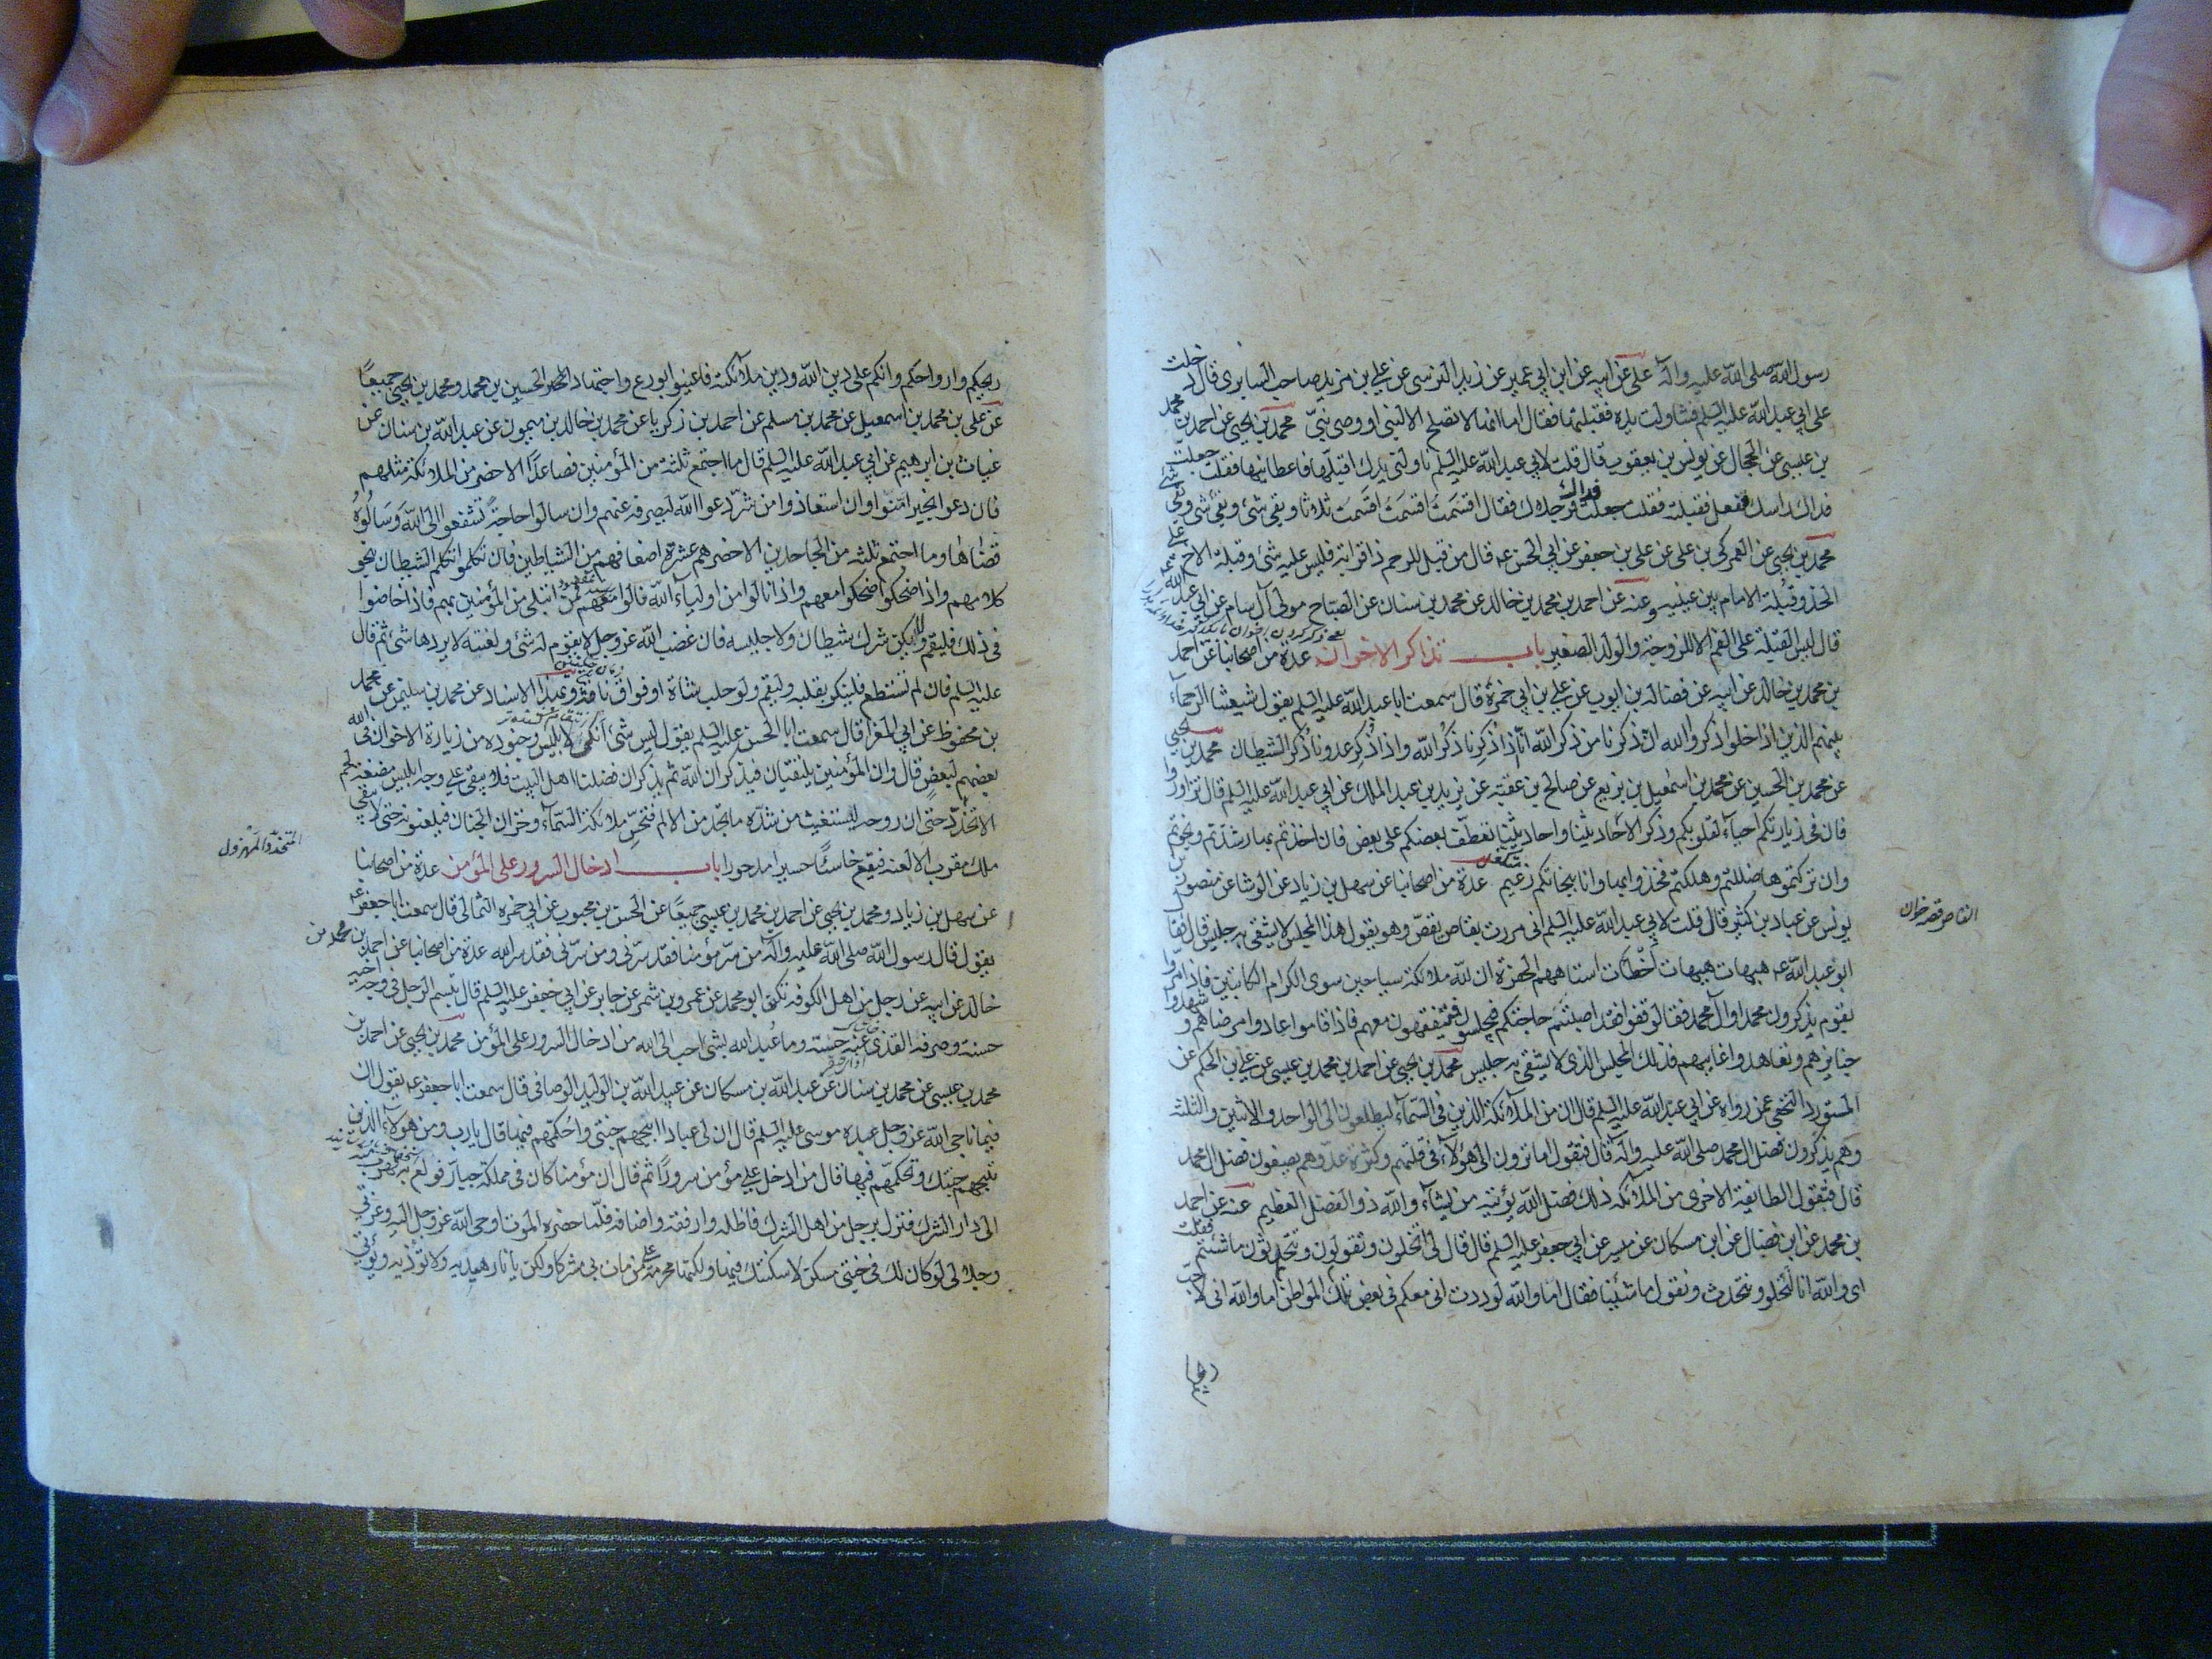 رسول الله صلى الله عليه وآله على عن ابيه عن ابن ابي عمير عن زيد النرسى عن علي بن مزيد صاحب السابرى قال دخلت
على ابي عبد الله عليه السلم فتناولت يده فقبلتها فقال اما انها لا تصلح الا لنبى او وصى نبىّ محمد بن يحيى عن احمد بن محمد
بن عيسى عن الحجال عن يونس بن يعقوب قال قلت لابي عبد الله عليه السلم ناولنى يدك اقبلها فاعطانيها فقلت جعلت
فداك راسك ففعل فقبلته فقلت جعلت فداك رجلاك فقال اقسمت اقسمت اقسمت ثلاثا وبقى شئ وبقى شئ وبقى شئ
محمد بن يحيى عن العمركى بن على عن على بن جعفر عن ابي الحسن عه قال من قبل للرحم ذا قرابة فليس عليه شئ وقبلة الاخ على
الخد وقبلة الامام بين عينيه وعنه عن احمد بن محمد بن خالد عن محمد بن سنان عن الصباح مولى آل سام عن ابي عبد الله عه
قال ليس القبلة على الفم الا للزوجة والولد الصغير باب تذاكر الاخوان عدة من اصحابنا عن احمد
بن محمد بن خالد عن ابيه عن فضالة بن ايوب عن علي بن ابي حمزة قال سمعت ابا عبد الله عليه السلم يقول شيعتنا الرحماء
بينهم الذين اذا خلوا ذكروا الله ان ذكرنا من ذكر الله انا اذا ذكرنا ذكر الله واذا ذكر عدونا ذكر الشيطان محمد بن يحيى
عن محمد بن الحسين عن محمد بن اسمعيل بن بزيع عن صالح بن عقبه عن يزيد بن عبد الملك عن ابي عبد الله عليه السلم قال تزاوروا
فان فى زيارتكم احياء لقلوبكم وذكر الاحاديثنا واحاديثنا تعطف بعضكم على بعض فان اخذتم بها رشدتم ونجوتم
وان تركتموها ضللتم وهلكتم فخذوا بها وانا بنجاتكم زعيم عدة من اصحابنا عن سهل بن زياد عن الوشا عن منصور بن
يونس عن عباد بن كثير قال قلت لابي عبد الله عليه السلم انى مررت بقاص يقص وهو يقول هذا المجلس لا يشقى به جليس قال فقال
القاص قصه خوان
ابو عبد الله عه هيهات هيهات اخطات استاههم الحفرة ان لله ملائكة سياحين سوى الكرام الكاتبين فاذا مروا
بقوم يذكرون محمدا وآل محمد فقالو قفوا فقد اصبتم حاجتكم فيجلسون فيتفقهون معهم فاذا قاموا عادوا مرضاهم وشهدوا
جنايزهم وتعاهدوا غايبهم فذلك المجلس الذى لا يشقى به جليس محمد بن يحيى عن احمد بن محمد بن عيسى عن علي بن الحكم عن
المستورد النخعى عمن رواه عن ابي عبد الله عليه السلم قال ان من الملآئكة الذين فى السماء ليطلعون الى الواحد والاثنين والثلثة
وهم يذكرون فضل ال محمد صلى الله عليه وآله قال فتقول اما ترون الى هؤلآء فى قلتهم وكثرة عدوهم يصفون فضل ال محمد
قال فتقول الطايفة الاخرى من الملآئكة ذلك فضل الله يؤتيه من يشآء والله ذو الفضل العظيم عنه عن احمد
بن محمد عن ابن فضال عن ابن مسكان عن ميسر عن ابي جعفر عليه السلم قال قال لى اتخلون وتقولون وتتحدثون ما شئتم فقلت
اى والله انا لنخلو ونتحدث ونقول ما شئنا فقال اما والله لوددت انى معكم فى بعض تلك المواطن اما والله انى لاحب
ريحكم وارواحكم وانكم على دين الله ودين ملآئكته فاعينوا بورع واجتهاد الحسين بن محمد ومحمد بن يحيى جميعًا
عن على بن محمد بن اسمعيل عن محمد بن مسلم عن احمد بن زكريا عن محمد بن خالد بن ميمون عن عبد الله بن سنان عن
غياث بن ابرهيم عن ابي عبد الله عليه السلم قال ما اجتمع ثلثة من المؤمنين فصاعدًا الا حضر من الملائكة مثلهم
فان دعوا بخير امّنوا وان استعاذوا من شرّ دعوا الله ليصرفه عنهم وان سالوا حاجة تشفعوا الى الله وسالوه
قضاها وما اجتمع ثلثه من الجاحدين الا حضرهم عشرة اضعافهم من الشياطين فان تكلموا تكلم الشيطان بنحو
كلامهم واذا ضحكوا ضحكوا معهم واذا نالوا من اوليآء الله نالوا معهم فمن ابتلى من المؤمنين بهم فاذا خاضوا
فى ذلك فليقم ولا يكن شرك شيطان ولا جليسه فان غضب الله عز وجل لا يقوم له شئ ولعنته لا يردها شئ ثم قال
عليه السلم فان لم تستطع فلينكر بقلبه وليقم ولو حلب شاة او فواق ناقة وبهذا الاسناد عن محمد بن سليمن عن محمد
بن محفوظ عن ابي المغرا قال سمعت ابا الحسن عليه السلم يقول ليس شئ انكى لابليس وجنوده من زيارة الاخوان فى الله
بعضهم لبعض قال وان المؤمنين يلتقيان فيذكران الله ثم يذكران فضلنا اهل البيت فلا يبقى على وجه ابليس مضغة لحم
الا تخدد حتى ان روحه لتستغيث من شدّه ما تجد من الالم فتحس ملائكة السمآء وخزان الجنان فيلعنونه حتى لا يبقى
المتخدد المهزول
ملك مقرب الا لعنه فيقع خاسئًا حسيرا مدحورا باب ادخال السرور على المؤمن عدة من اصحابنا
عن سهل بن زياد ومحمد بن يحيى عن احمد بن محمد بن عيسى جميعًا عن الحسن بن محبوب عن ابي حمزه الثمالى قال سمعت ابا جعفر عه
يقول قال رسول الله صلى الله عليه وآله من سرّ مؤمنا فقد سرّنى ومن سرّنى فقد سر الله عدة من اصحابنا عن احمد بن محمد بن
خالد عن ابيه عن رجل من اهل الكوفه تكنى ابو محمد عن عمرو بن شمر عن جابر عن ابي جعفر عليه السلم قال تبسم الرجل فى وجه اخيه
حسنة وصرفه القذى عنه حسنه وما عُبد الله بشئ احب الى الله من ادخال السرور على المؤمن محمد بن يحيى عن احمد بن
محمد بن عيسى عن محمد بن سنان عن عبد الله بن مسكان عن عبيد الله بن الوليد الوصافى قال سمعت ابا جعفر عه يقول ان
فيما ناجى الله عز وجل عبده موسى عليه السلم قال ان لى عبادا ابيحهم جنتى واحكمهم فيها قال يا رب ومن هولآء الذين
تبيحهم جنتك وتحكمهم فيها قال من ادخل على مؤمن سرورًا ثم قال ان مؤمنا كان فى مملكة جبار فولع به فهرب
الى دار الشرك فنزل برجل من اهل الشرك فاظله وارفقه واضافه فلما حضره الموت اوحى الله عز وجل اليه وعزتى
وجلالى لو كان لك فى جنتى مسكن لاسكنتك فيها ولكنها محرمة على من مات بى مشركا ولكن يا نار هيديه ولا تؤذيه ويؤتى